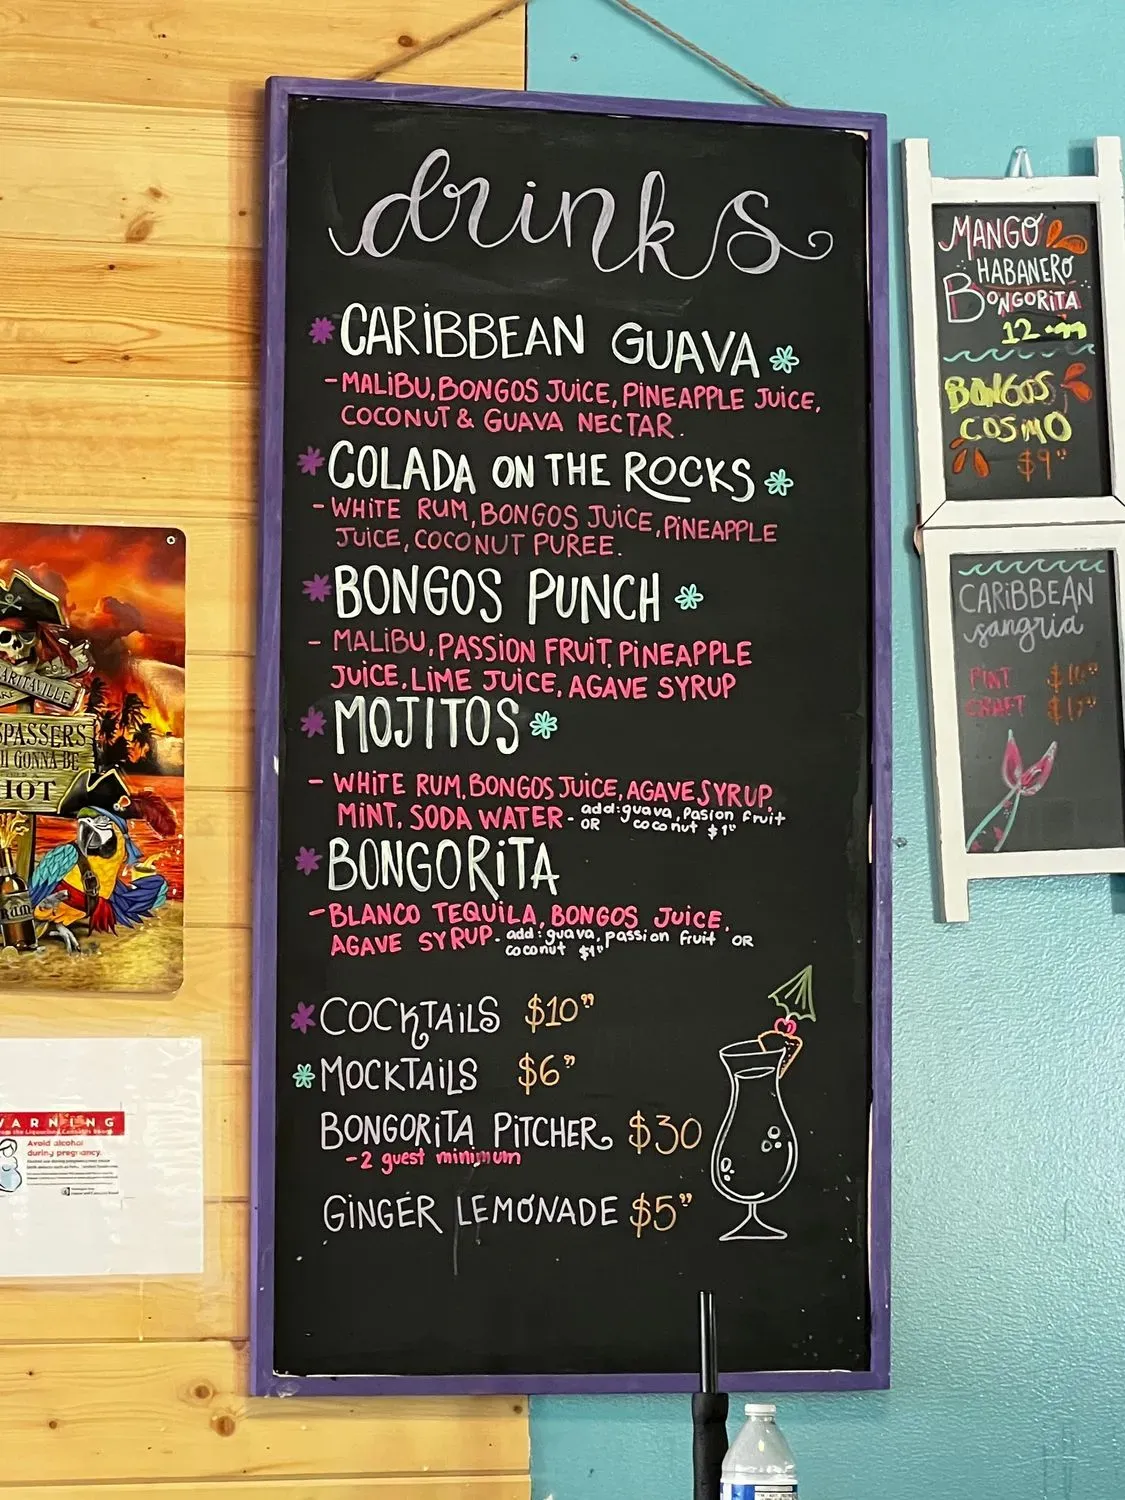 drinks
CARIBBEAN GUAVA
- MALIBU, BONGOS JUICE, PINEAPPLE JUICE,
COCONUT & GUAVA NECTAR.
COLADA ON THE ROCKS
- WHITE RUM, BONGOS JUICE, PINEAPPLE
JUICE, COCONUT PUREE.
BONGOS PUNCH
- MALIBU, PASSION FRUIT, PINEAPPLE
JUICE, LIME JUICE, AGAVE SYRUP
MOJITOS
- WHITE RUM, BONGOS JUICE, AGAVE SYRUP,
MINT, SODA WATER - add: guava, Pasion fruit
OR coconut $1"
BONGORITA
- BLANCO TEQUILA, BONGOS JUICE,
AGAVE SYRUP - add: guava, passion fruit OR
coconut $1"
COCKTAILS $10"
MOCKTAILS $6"
BONGORITA PITCHER $30
- 2 guest minimum
GINGER LEMONADE $5"
MANGO
HABANERO
BONGORITA
12.99
BONGOS
COSMO
$9"
CARIBBEAN
sangria
PINT
CRAFT
ARITAVILLE
SPASSERS
GONNA BE
IOT
Rum
WARNING
Avoid alcohol
during pregnancy.